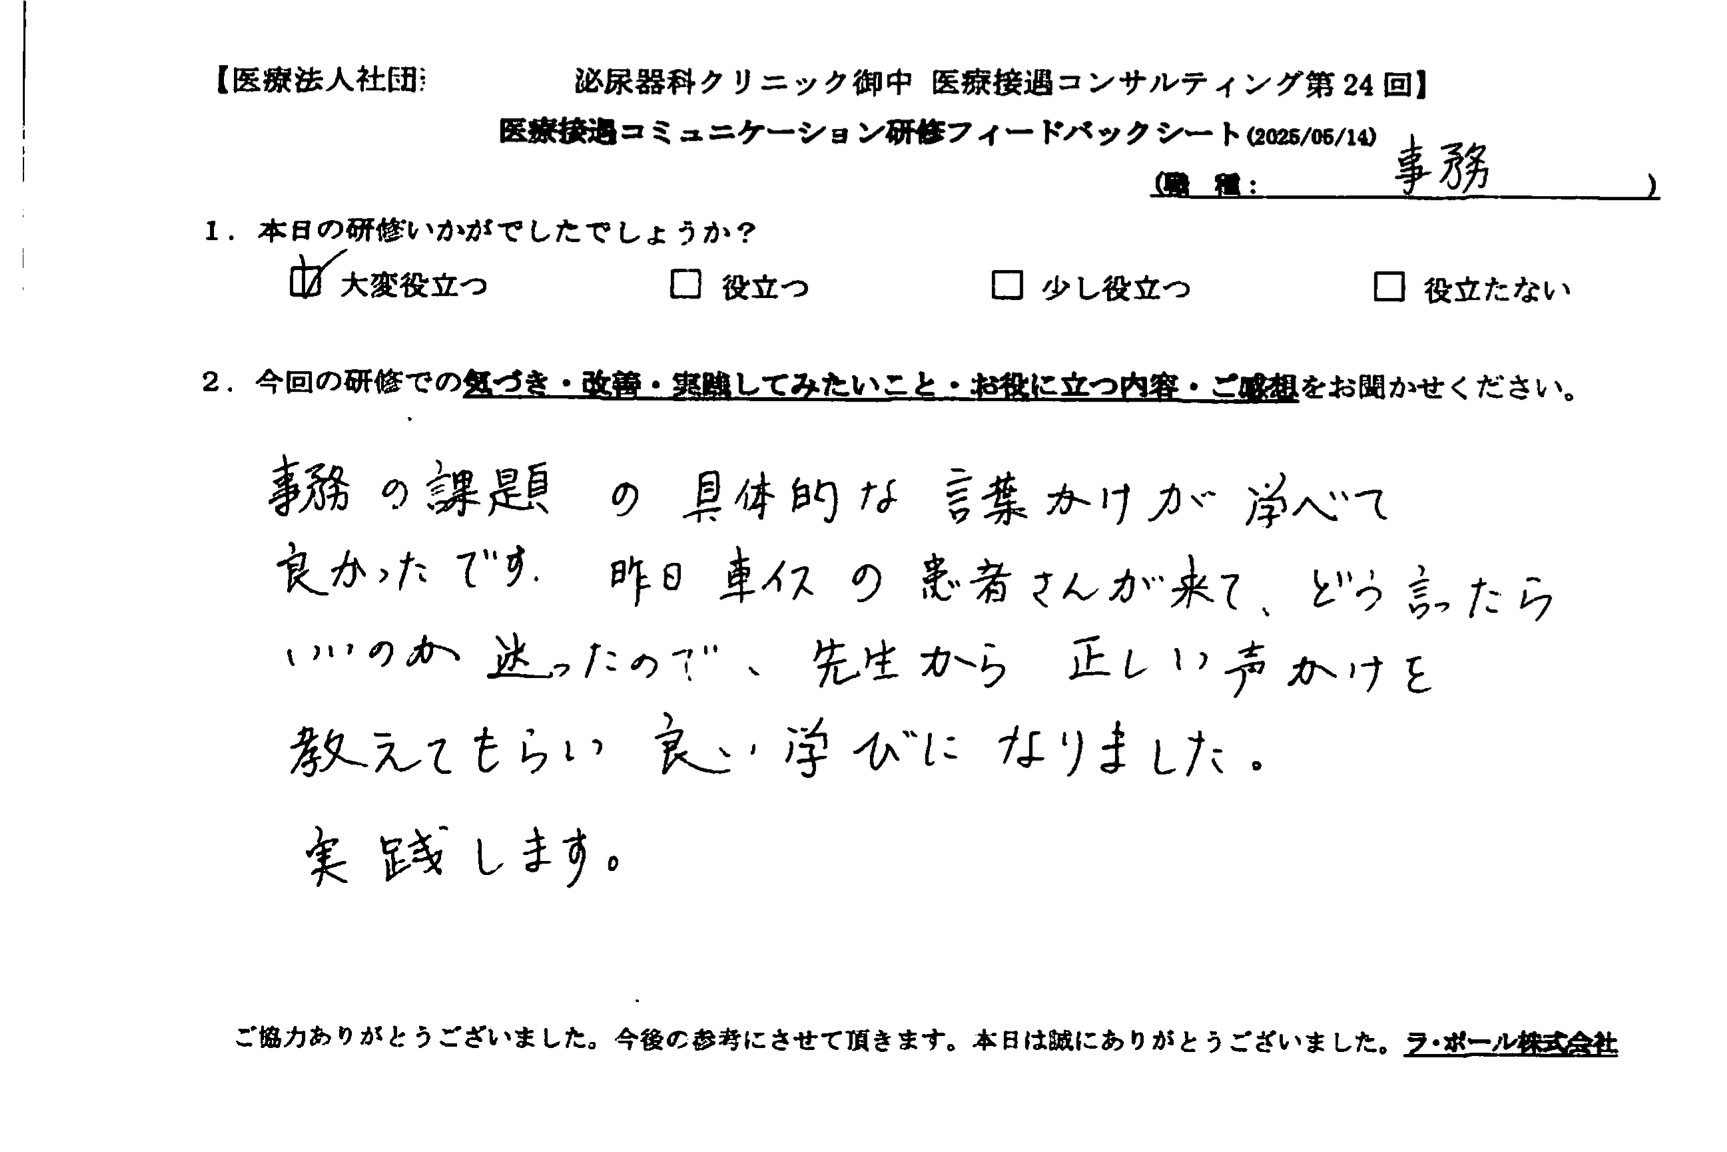 【医療法人社団 泌尿器科クリニック御中 医療接遇コンサルティング第24回】
医療接遇コミュニケーション研修フィードバックシート(2025/05/14)
(職 種: 事務 )
1. 本日の研修いかがでしたでしょうか?
☑ 大変役立つ □ 役立つ □ 少し役立つ □ 役立たない
2. 今回の研修での気づき・改善・実践してみたいこと・お役に立つ内容・ご感想をお聞かせください。
事務の課題の具体的な言葉かけが学べて
良かったです. 昨日車イスの患者さんが来て、どう言ったら
いいのか迷ったので、先生から正しい声かけを
教えてもらい良い学びになりました。
実践します。
ご協力ありがとうございました。今後の参考にさせて頂きます。本日は誠にありがとうございました。ラ・ポール株式会社